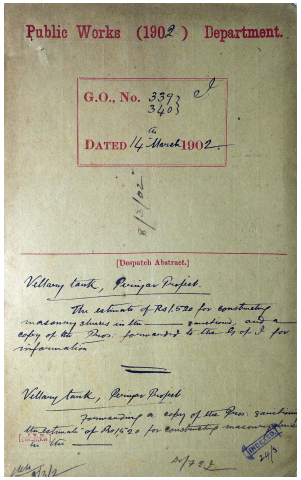 Public Works (1902) Department.
G.O., No. 339 } I
340 }
DATED 14th March 1902.
8/3/02
[Despatch Abstract.]
Vellary tank, Periyar Project.
The estimate of Rs 1,520 for constructing
masonry sluices in the sanctioned, and a
copy of the Pros: forwarded to the G. of I for
information
Vellary tank, Periyar Project
Forwarding a copy of the Pros: sanctioning
the estimate of Rs 1,520 for constructing masonry
in the
INDEXED
24/3